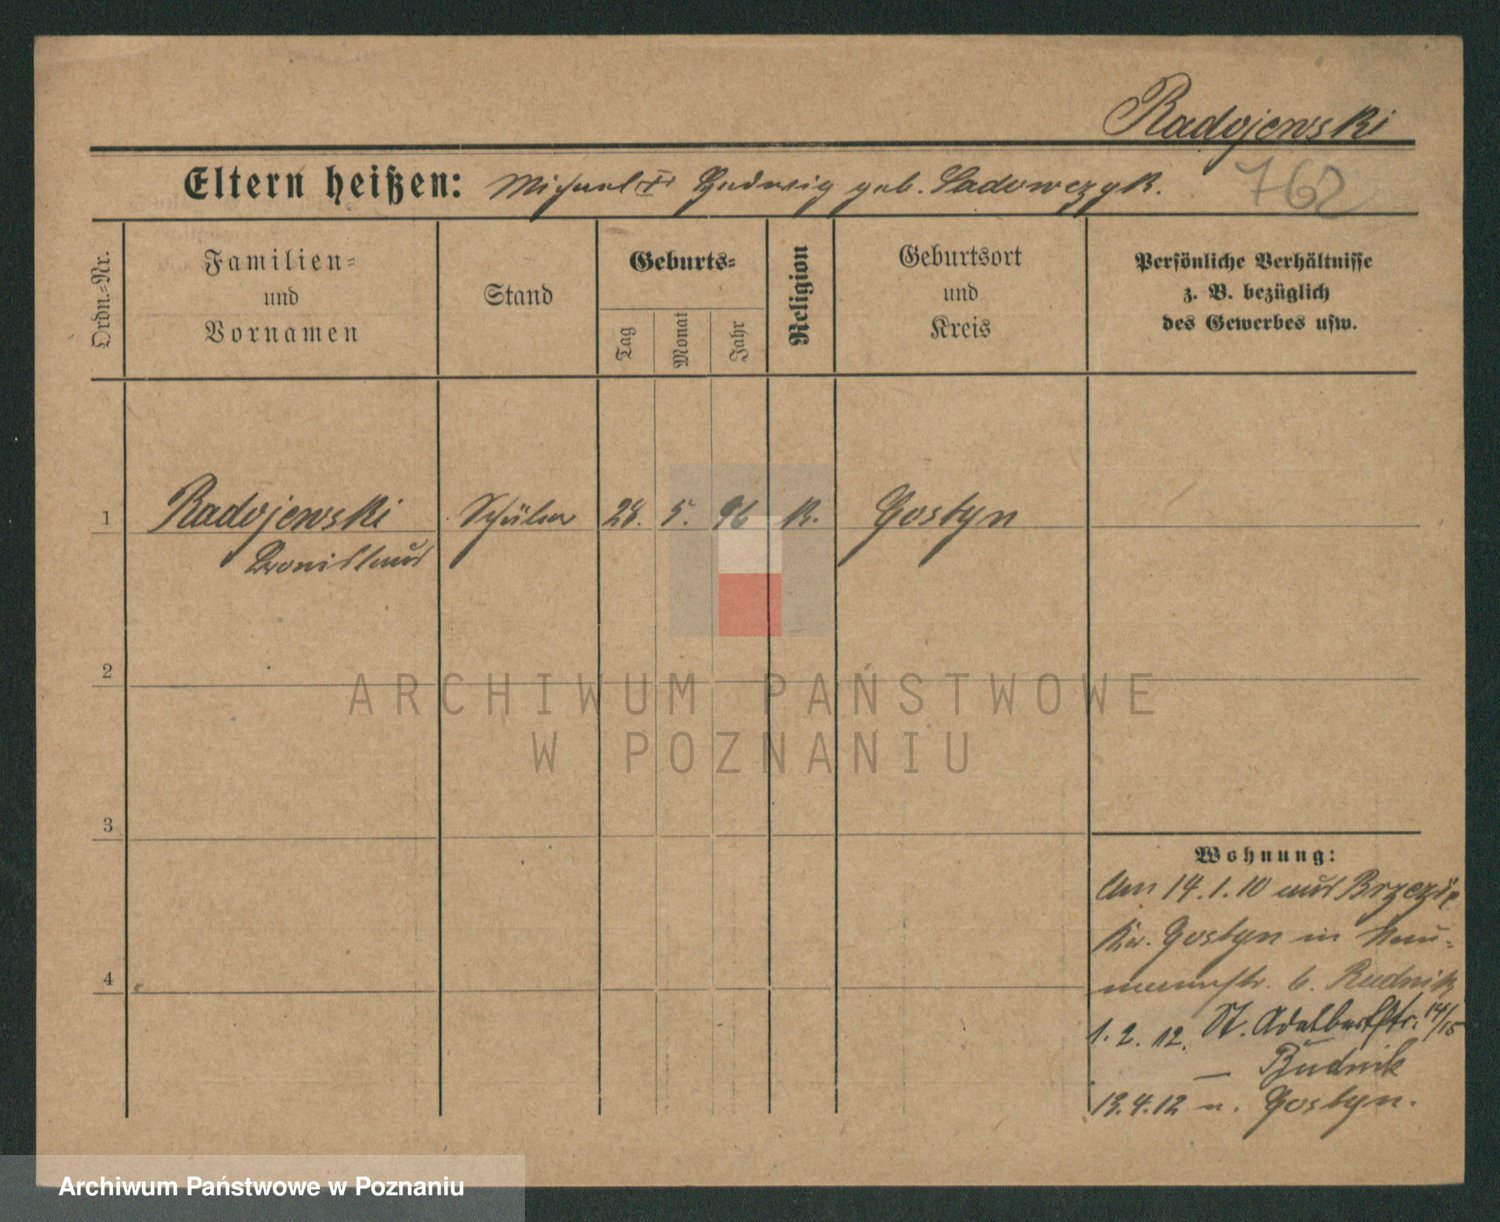 Radojewski
762
Eltern heißen: Michael Hedwig geb. Sadowczyk.
Ordn.-Nr.
Familien- und Vornamen
Stand
Geburts-
Tag
Monat
Jahr
Religion
Geburtsort und Kreis
Persönliche Verhältnisse
z. B. bezüglich
des Gewerbes usw.
1 Radojewski Schüler 28. 5. 96 K. Gostyn
Bronislaus
2
ARCHIWUM PAŃSTWOWE
W POZNANIU
3
4
Wohnung:
Am 14.1.10 aus Brzezie
Kr. Gostyn in Nau-
mannstr. 6. Rudnik
1. 2. 12. St. Adalbertstr. 14/15
— Budnik
13.4.12 n. Gostyn.
Archiwum Państwowe w Poznaniu